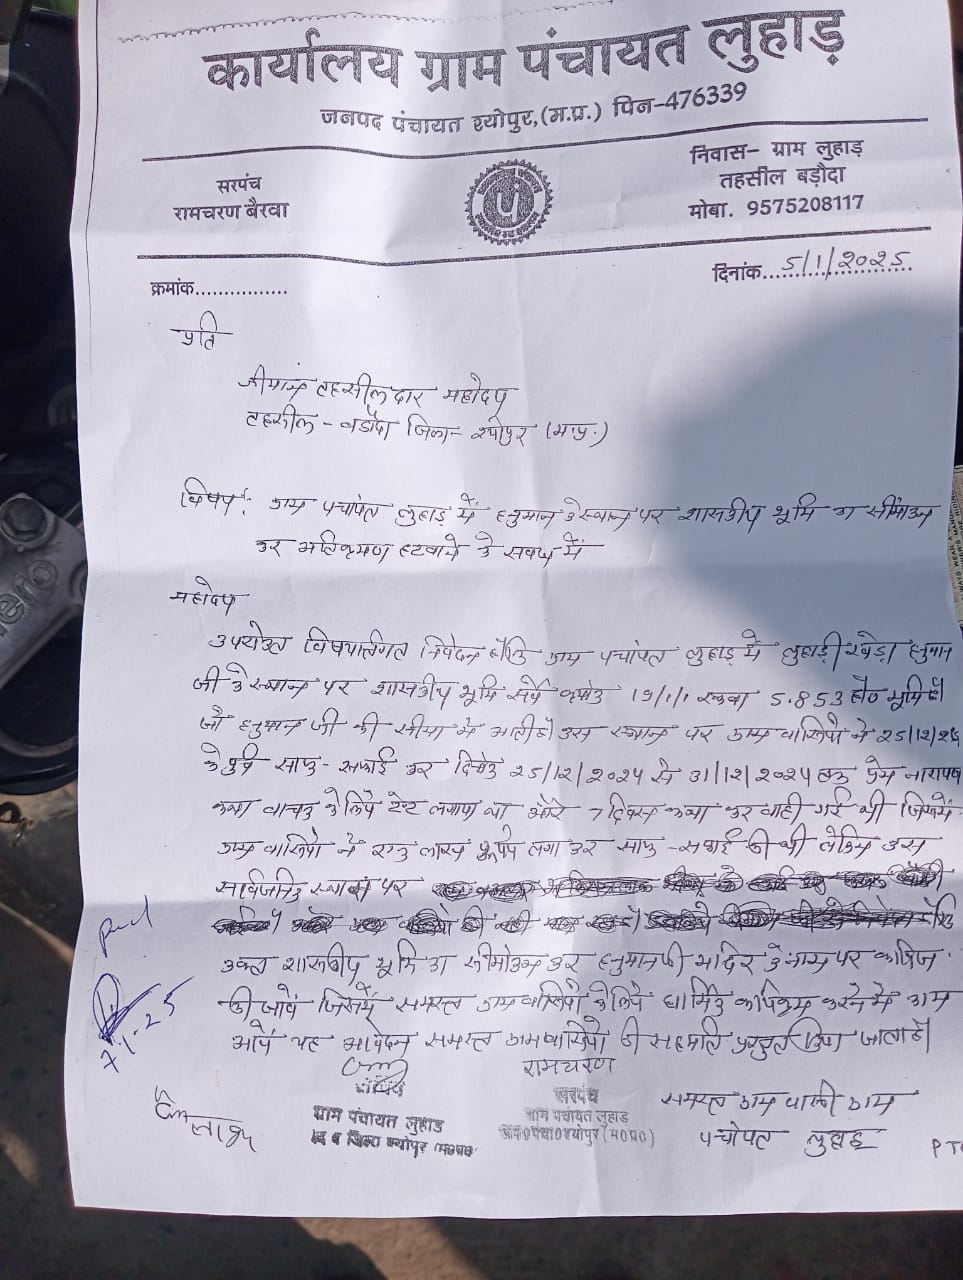 कार्यालय ग्राम पंचायत लुहाड़
जनपद पंचायत श्योपुर,(म.प्र.) पिन-476339
सरपंच
रामचरण बैरवा
निवास- ग्राम लुहाड़
तहसील बड़ौदा
मोबा. 9575208117
क्रमांक...............
दिनांक.. 5/1/2025
प्रति
श्रीमान तहसीलदार महोदय
तहसील - बडौदा जिला- श्योपुर (म.प्र.)
विषय: ग्राम पचांयत लुहाड़ में हनुमान के स्थान पर शासकीय भूमि का सीमांकन
कर अतिक्रमण हटवाने के सबध में
महोदय
उपरोक्त विषयार्तगत निवेदन है कि ग्राम पचांयत लुहाड़ में लुहाड़ी खेड़ा हनुमान
जी के स्थान पर शासकीय भूमि सर्वे क्रमांक 19/1/1 रकवा 5.853 है० भूमि है
जो हनुमान जी की सीमा में आती है उस स्थान पर ग्राम वासियो ने 25/12/24
के पूर्व साफ-सफाई कर दिनांक 25/12/2024 से 31/12/2024 तक प्रेम नारायण
कथा वाचक के लिये टेन्ट लगाया था और 7 दिवस कथा कर वाही गई थी जिसमें
ग्राम वासियो ने एक लाख रूपये लगा कर साफ-सफाई की थी लेकिन उस
सार्वजनिक स्थान पर
कि
उक्त शासकीय भूमि का सीमांकन कर हनुमान जी मंदिर के नाम पर काबिज
की जावें जिसमें समस्त ग्राम वासियो के लिये धार्मिक कार्यक्रम करने में काम
आयें यह आवेदन समस्त ग्राम वासियो की सहमति प्रस्तुत किया जाता है।
7.1.25
रामचरण
सचिव
ग्राम पंचायत लुहाड
सरपंच
ग्राम पंचायत लुहाड
समस्त ग्राम वासी ग्राम
पचांयत लुहाड़